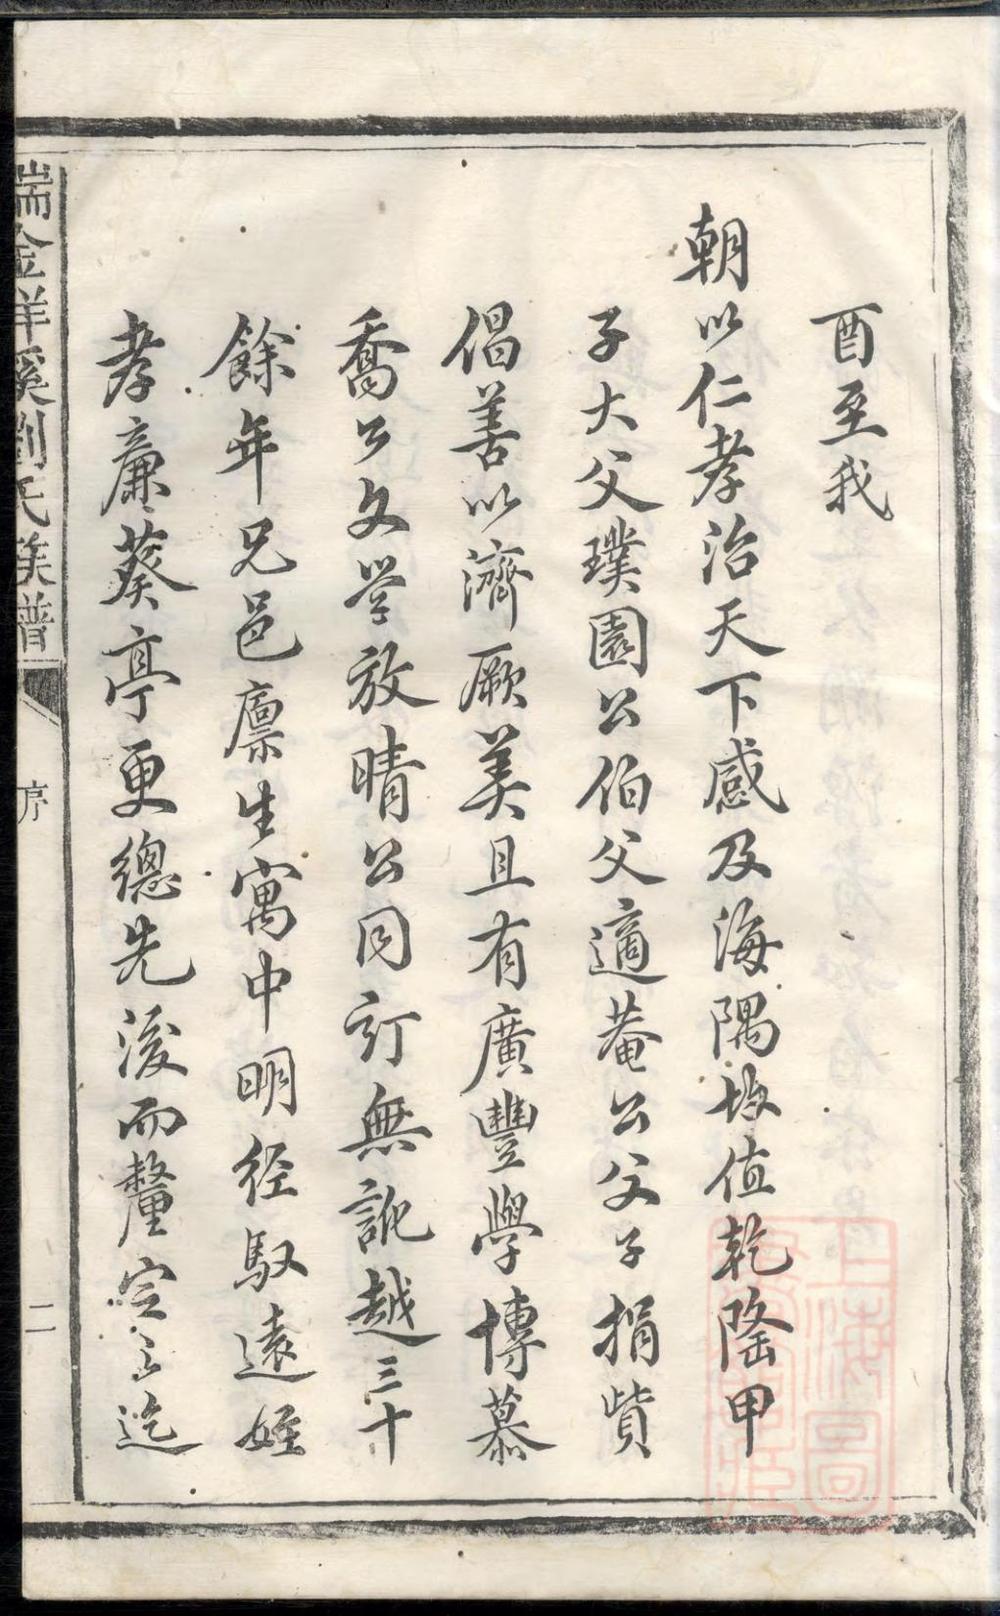 酉至我
朝以仁孝治天下感及海隅故值乾隆甲
子大父璞園公伯父適菴公父子捐貲
倡善以濟厥美且有廣豐學博慕
喬公文学放晴公同訂無訛越三十
餘年兄邑廪生寓中明经馭遠姪
孝亷葵亭更總先後而釐定之迄
瑞金洋溪劉氏族譜
序
二